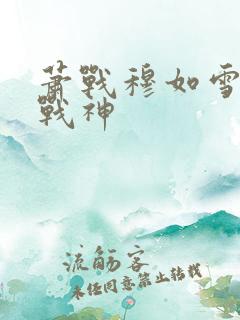 萧戰穆如雪
戰神
流觞客
未任同意禁止转载